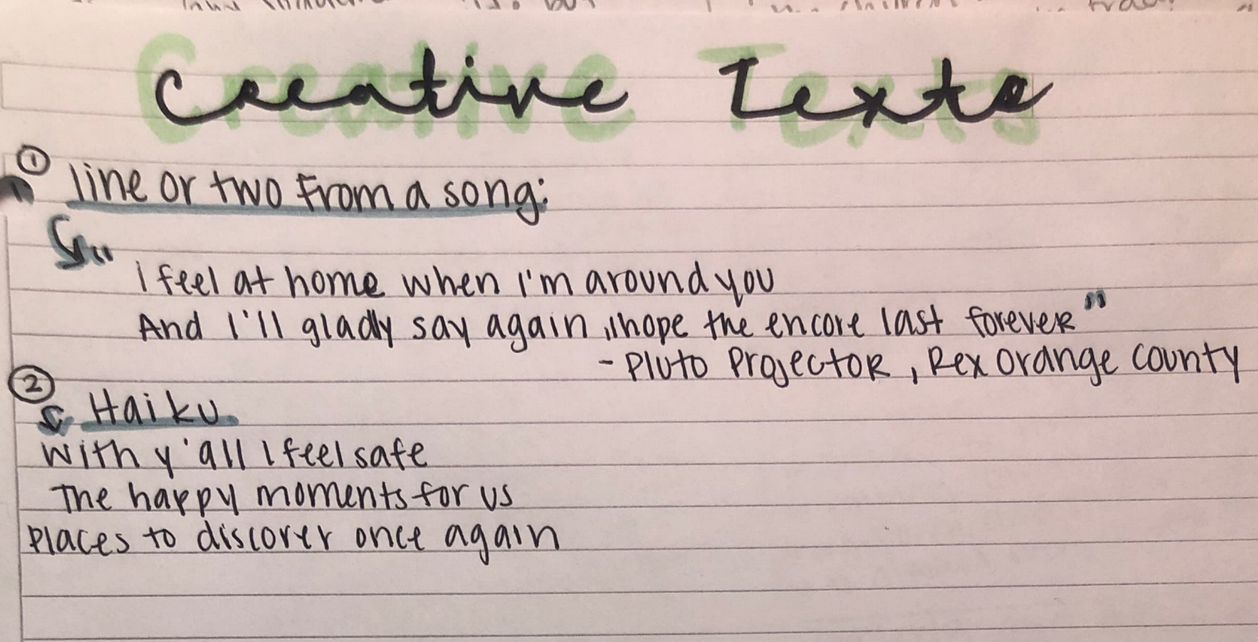 Creative Texts
① line or two From a song:
"
I feel at home when I'm around you
And I'll gladly say again, I hope the encore last forever"
- Pluto Projector, Rex Orange County
②
Haiku.
With y'all I feel safe
The happy moments for us
Places to discover once again